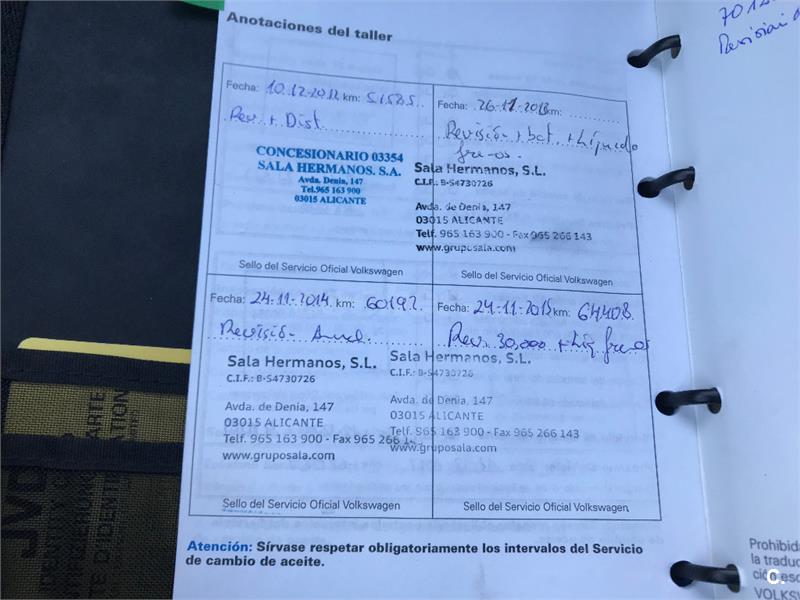 Anotaciones del taller
Fecha: 10.12.2012 km: 51585
Rev. + Dist.
CONCESIONARIO 03354
SALA HERMANOS. S.A.
Avda. Denia, 147
Tel.965 163 900
03015 ALICANTE
Sello del Servicio Oficial Volkswagen
Fecha: 26.11.2013 km:
Revisión + bat. + Líquido
frenos.
Sala Hermanos, S.L.
C.I.F.: B-54730726
Avda. de Denia, 147
03015 ALICANTE
Telf. 965 163 900 - Fax 965 266 143
www.gruposala.com
Sello del Servicio Oficial Volkswagen
Fecha: 24.11.2014 km: 60192
Revisión Anual.
Sala Hermanos, S.L.
C.I.F.: B-54730726
Avda. de Denia, 147
03015 ALICANTE
Telf. 965 163 900 - Fax 965 266 1
www.gruposala.com
Sello del Servicio Oficial Volkswagen
Fecha: 24.11.2015 km: 64408
Rev. 30,000 + Liq frenos
Sala Hermanos, S.L.
C.I.F.: B-54730726
Avda. de Denia, 147
03015 ALICANTE
Telf. 965 163 900 - Fax 965 266 143
www.gruposala.com
Sello del Servicio Oficial Volkswagen
Atención: Sírvase respetar obligatoriamente los intervalos del Servicio
de cambio de aceite.
Revision
Prohibida
la traduc
ción esc
VOLKSW